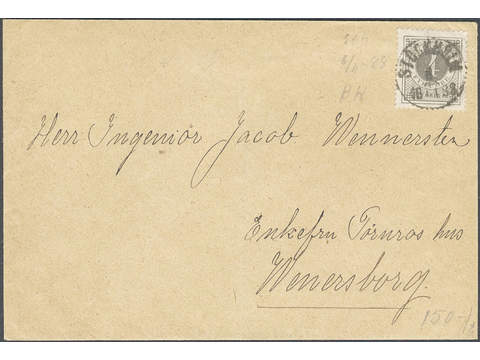 4
STOCKHOLM
Herr Ingeniör Jacob Wennersten
Enkefru Törnros hus
Wenersborg.
150-/